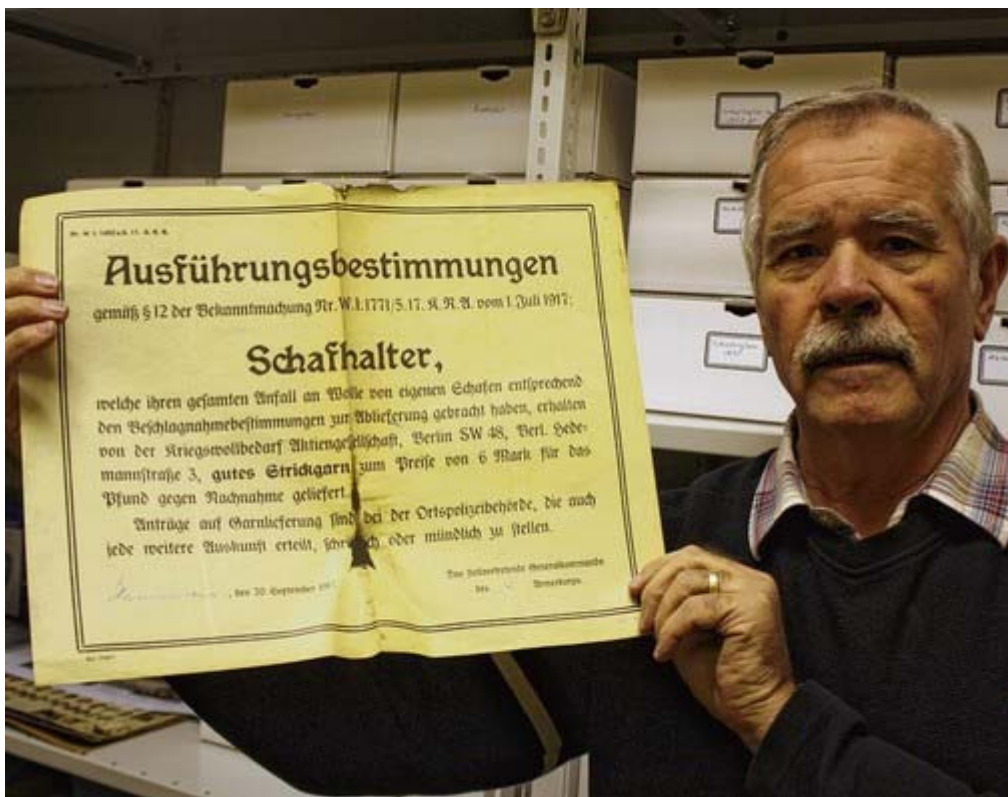 Ausführungsbestimmungen
gemäß § 12 der Bekanntmachung Nr. W. I. 1771/5. 17. K. R. A. vom 1. Juli 1917:
Schafhalter,
welche ihren gesamten Anfall an Wolle von eigenen Schafen entsprechend
den Beschlagnahmebestimmungen zur Ablieferung gebracht haben, erhalten
von der Kriegswollbedarf Aktiengesellschaft, Berlin SW 48, Verl. Hede-
mannstraße 3, gutes Strickgarn zum Preise von 6 Mark für das
Pfund gegen Nachnahme geliefert.
Anträge auf Garnlieferung sind bei der Ortspolizeibehörde, die auch
jede weitere Auskunft erteilt, schriftlich oder mündlich zu stellen.
, den 30. September
Das stellvertretende Generalkommando
des Armeekorps.